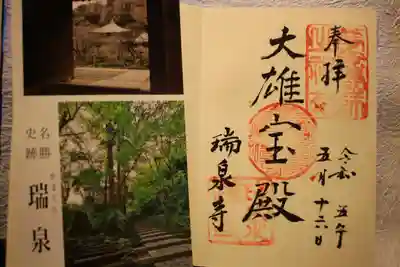 名勝
史跡
瑞泉
奉拝
大雄宝殿
瑞泉寺
令和五年
五月十六日